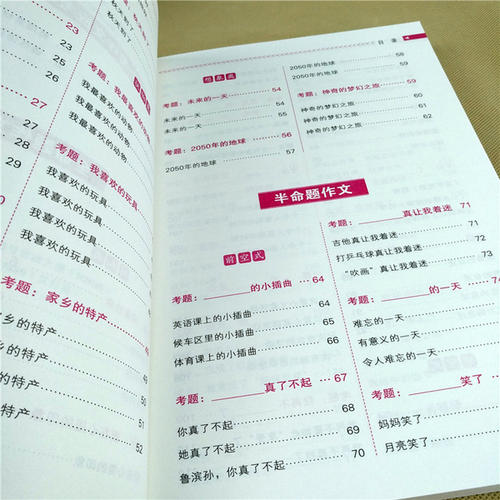 秋天到了
23
23
25
26
考题：我最喜欢的动物
27
我最喜欢的动物
我最喜欢的动物
考题：我喜欢的玩具
29
我喜欢的玩具
30
我喜欢的玩具
我喜欢的玩具
考题：家乡的特产
家乡的特产
家乡的特产 50
家乡的特产 51
52
目录
想象篇
考题：未来的一天 54
未来的一天 54
未来的一天 55
考题：2050年的地球 56
2050年的地球 57
2050年的地球 58
2050年的地球 58
考题：神奇的梦幻之旅 59
神奇的梦幻之旅 60
神奇的梦幻之旅 61
神奇的梦幻之旅 62
半命题作文
前空式
考题：______的小插曲 64
英语课上的小插曲 64
候车区里的小插曲 65
体育课上的小插曲 66
考题：______真了不起 67
你真了不起 68
她真了不起 69
鲁滨孙，你真了不起 70
考题：______真让我着迷 71
吉他真让我着迷 71
打乒乓球真让我着迷 72
“吹画”真让我着迷 73
考题：______的一天 74
难忘的一天
有意义的一天
令人难忘的一天
考题：______笑了
妈妈笑了
月亮笑了